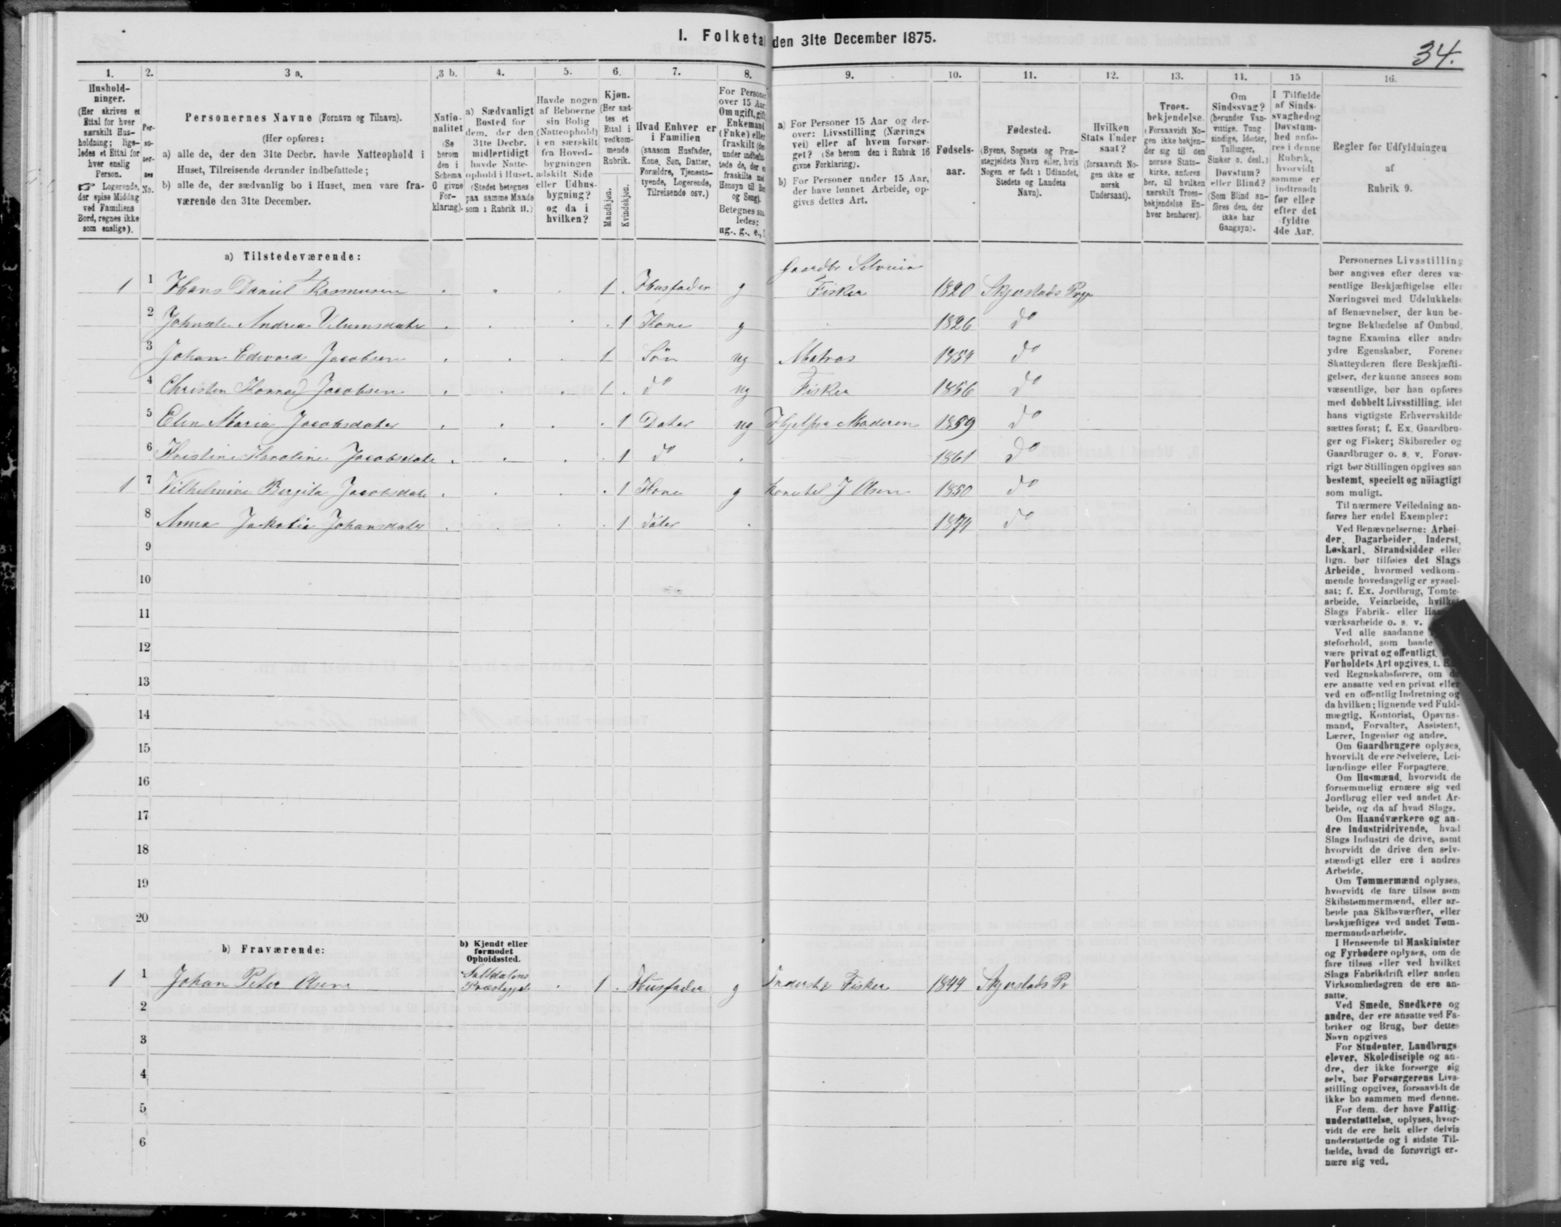 I. Folketal den 31te December 1875.
34.
1.
Hushold-
ninger.
(Her skrives et
Ettal for hver
særskilt Hus-
holdning; lige-
ledes et Ettal for
hver enslig
Person.
Logerende,
der spise Middag
ved Familiens
Bord, regnes ikke
som enslige).
2.
Per-
so-
ner-
nes
No.
3 a.
Personernes Navne (Fornavn og Tilnavn).
(Her opføres:
a) alle de, der den 31te Decbr. havde Natteophold i
Huset, Tilreisende derunder indbefattede;
b) alle de, der sædvanlig bo i Huset, men vare fra-
værende den 31te December.
3 b.
Natio-
nalitet
(Se
herom
den i
Schema
givne
For-
klaring).
4.
a) Sædvanligt
Bosted for
dem, der den
31te Decbr.
midlertidigt
havde Natte-
ophold i Huset.
(Stedet betegnes
paa samme Maade
som i Rubrik 11.)
5.
Havde nogen
af Beboerne
sin Bolig
(Natteophold)
i en særskilt
fra Hoved-
bygningen
adskilt Side
eller Udhus-
bygning?
og da i
hvilken?
6.
Kjøn.
(Her sæt-
tes et
Ettal i
vedkom-
mende
Rubrik.
Mandkjøn.
Kvindekjøn.
7.
Hvad Enhver er
i Familien
(saasom Husfader,
Kone, Søn, Datter,
Forældre, Tjeneste-
tyende, Logerende,
Tilreisende osv.)
8.
For Personer
over 15 Aar
Om ugift, gift,
Enkemand
(Enke) eller
fraskilt
Betegnes saa-
ledes:
ug., g., e.,
9.
a) For Personer 15 Aar og der-
over: Livsstilling (Nærings
vei) eller af hvem forsør-
get? (Se herom den i Rubrik 16
givne Forklaring).
b) For Personer under 15 Aar,
der have lønnet Arbeide, op-
gives dettes Art.
10.
Fødsels-
aar.
11.
Fødested.
(Byens, Sognets og Præ-
stegjeldets Navn eller, hvis
Nogen er født i Udlandet,
Stedets og Landets
Navn).
12.
Hvilken
Stats Under
saat?
(forsaavidt No-
gen ikke er
norsk
Undersaat).
13.
Troes-
bekjendelse.
(Forsaavidt No-
gen ikke bekjen-
der sig til den
norske Stats-
kirke, anføres
her, til hvilken
særskilt Troes-
bekjendelse En-
hver henhører).
14.
Om
Sindssvag?
(herunder Van-
vittige, Tung
sindige, Idioter,
Tullinger,
Sinker o. desl.)
Døvstum?
eller Blind?
(Som Blind an-
føres den, der
ikke har
Gangsyn).
15
I Tilfælde
af Sinds-
svaghed og
Døvstum-
hed anfø-
res i denne
Rubrik,
hvorvidt
samme er
indtraadt
før eller
efter det
fyldte
4de Aar.
16.
Regler for Udfyldningen
af
Rubrik 9.
a) Tilstedeværende:
Gaardbr Selveier
1 1 Hans Daniel Rasmussen 1 Husfader g Fisker 1820 Skjerstads Præg
2 Andrea 1 Kone g 1826 do
3 Johan Edvard Jacobsen 1 Søn ug Matros 1854 do
4 Christen Jacobsen 1 do ug Fisker 1856 do
5 Elen Maria Jacobsdater 1 Dater ug Hjelper Moderen 1859 do
6 Jacobsdater 1 do 1861 do
1 7 Vilhelmine Bergita Jacobsdater 1 Kone g Kone til J Olsen 1850 do
8 Anna Johansdater 1 Dater do
9
10
11
12
13
14
15
16
17
18
19
20
b) Fraværende:
b) Kjendt eller
formodet
Opholdssted.
1 1 Johan Peter Olsen Saltdalens Præstegjeld 1 Husfader g Inderst & Fisker 1844 Skjerstads Pr
2
3
4
5
6
Personernes Livsstilling
bør angives efter deres væ-
sentlige Beskjæftigelse eller
Næringsvei med Udelukkelse
af Benævnelser, der kun be-
tegne Beklædelse af Ombud,
tagne Examina eller andre
ydre Egenskaber. Forener
Skatteyderen flere Beskjæfti-
gelser, der kunne ansees som
væsentlige, bør han opføres
med dobbelt Livsstilling, idet
hans vigtigste Erhvervskilde
sættes først; f. Ex. Gaardbru-
ger og Fisker; Skibsreder og
Gaardbruger o. s. v. Forøv-
rigt bør Stillingen opgives saa
bestemt, specielt og nøiagtigt
som muligt.
Til nærmere Veiledning an-
føres her endel Exempler:
Ved Benævnelserne: Arbei-
der, Dagarbeider, Inderst,
Løskarl, Strandsidder eller
lign. bør tilføies det Slags
Arbeide, hvormed vedkom-
mende hovedsagelig er syssel-
sat; f. Ex. Jordbrug, Tomte-
arbeide, Veiarbeide, hvilket
Slags Fabrik- eller
værksarbeide o. s. v.
Ved alle saadanne
steforhold, som baade
være privat og offentligt,
Forholdets Art opgives, t. Ex.
ved Regnskabsførere, om de
ere ansatte ved en privat eller
ved en offentlig Indretning og
da hvilken; lignende ved Fuld-
mægtig, Kontorist, Opsyns-
mand, Forvalter, Assistent,
Lærer, Ingeniør og andre.
Om Gaardbrugere oplyses,
hvorvidt de ere Selveiere, Lei-
lændinge eller Forpagtere.
Om Husmænd, hvorvidt de
fornemmelig ernære sig ved
Jordbrug eller ved andet Ar-
beide, og da af hvad Slags.
Om Haandværkere og an-
dre Industridrivende, hvad
Slags Industri de drive, samt
hvorvidt de drive den selv-
stændigt eller ere i andres
Arbeide.
Om Tømmermænd oplyses,
hvorvidt de fare tilsøs som
Skibstømmermænd, eller ar-
beide paa Skibsværfter, eller
beskjæftiges ved andet Tøm-
mermandsarbeide.
I Henseende til Maskinister
og Fyrbødere oplyses, om de
fare tilsøs eller ved hvilket
Slags Fabrikdrift eller anden
Virksomhedsgren de ere an-
satte.
Ved Smede, Snedkere og
andre, der ere ansatte ved Fa-
briker og Brug, bør dettes
Navn opgives
For Studenter, Landbrugs-
elever, Skoledisciple og an-
dre, der ikke forsørge sig
selv, bør Forsørgerens Livs-
stilling opgives, forsaavidt de
ikke bo sammen med denne.
For dem, der have Fattig-
understøttelse, oplyses, hvor-
vidt de ere helt eller delvis
understøttede og i sidste Til-
fælde, hvad de forøvrigt er-
nære sig ved.